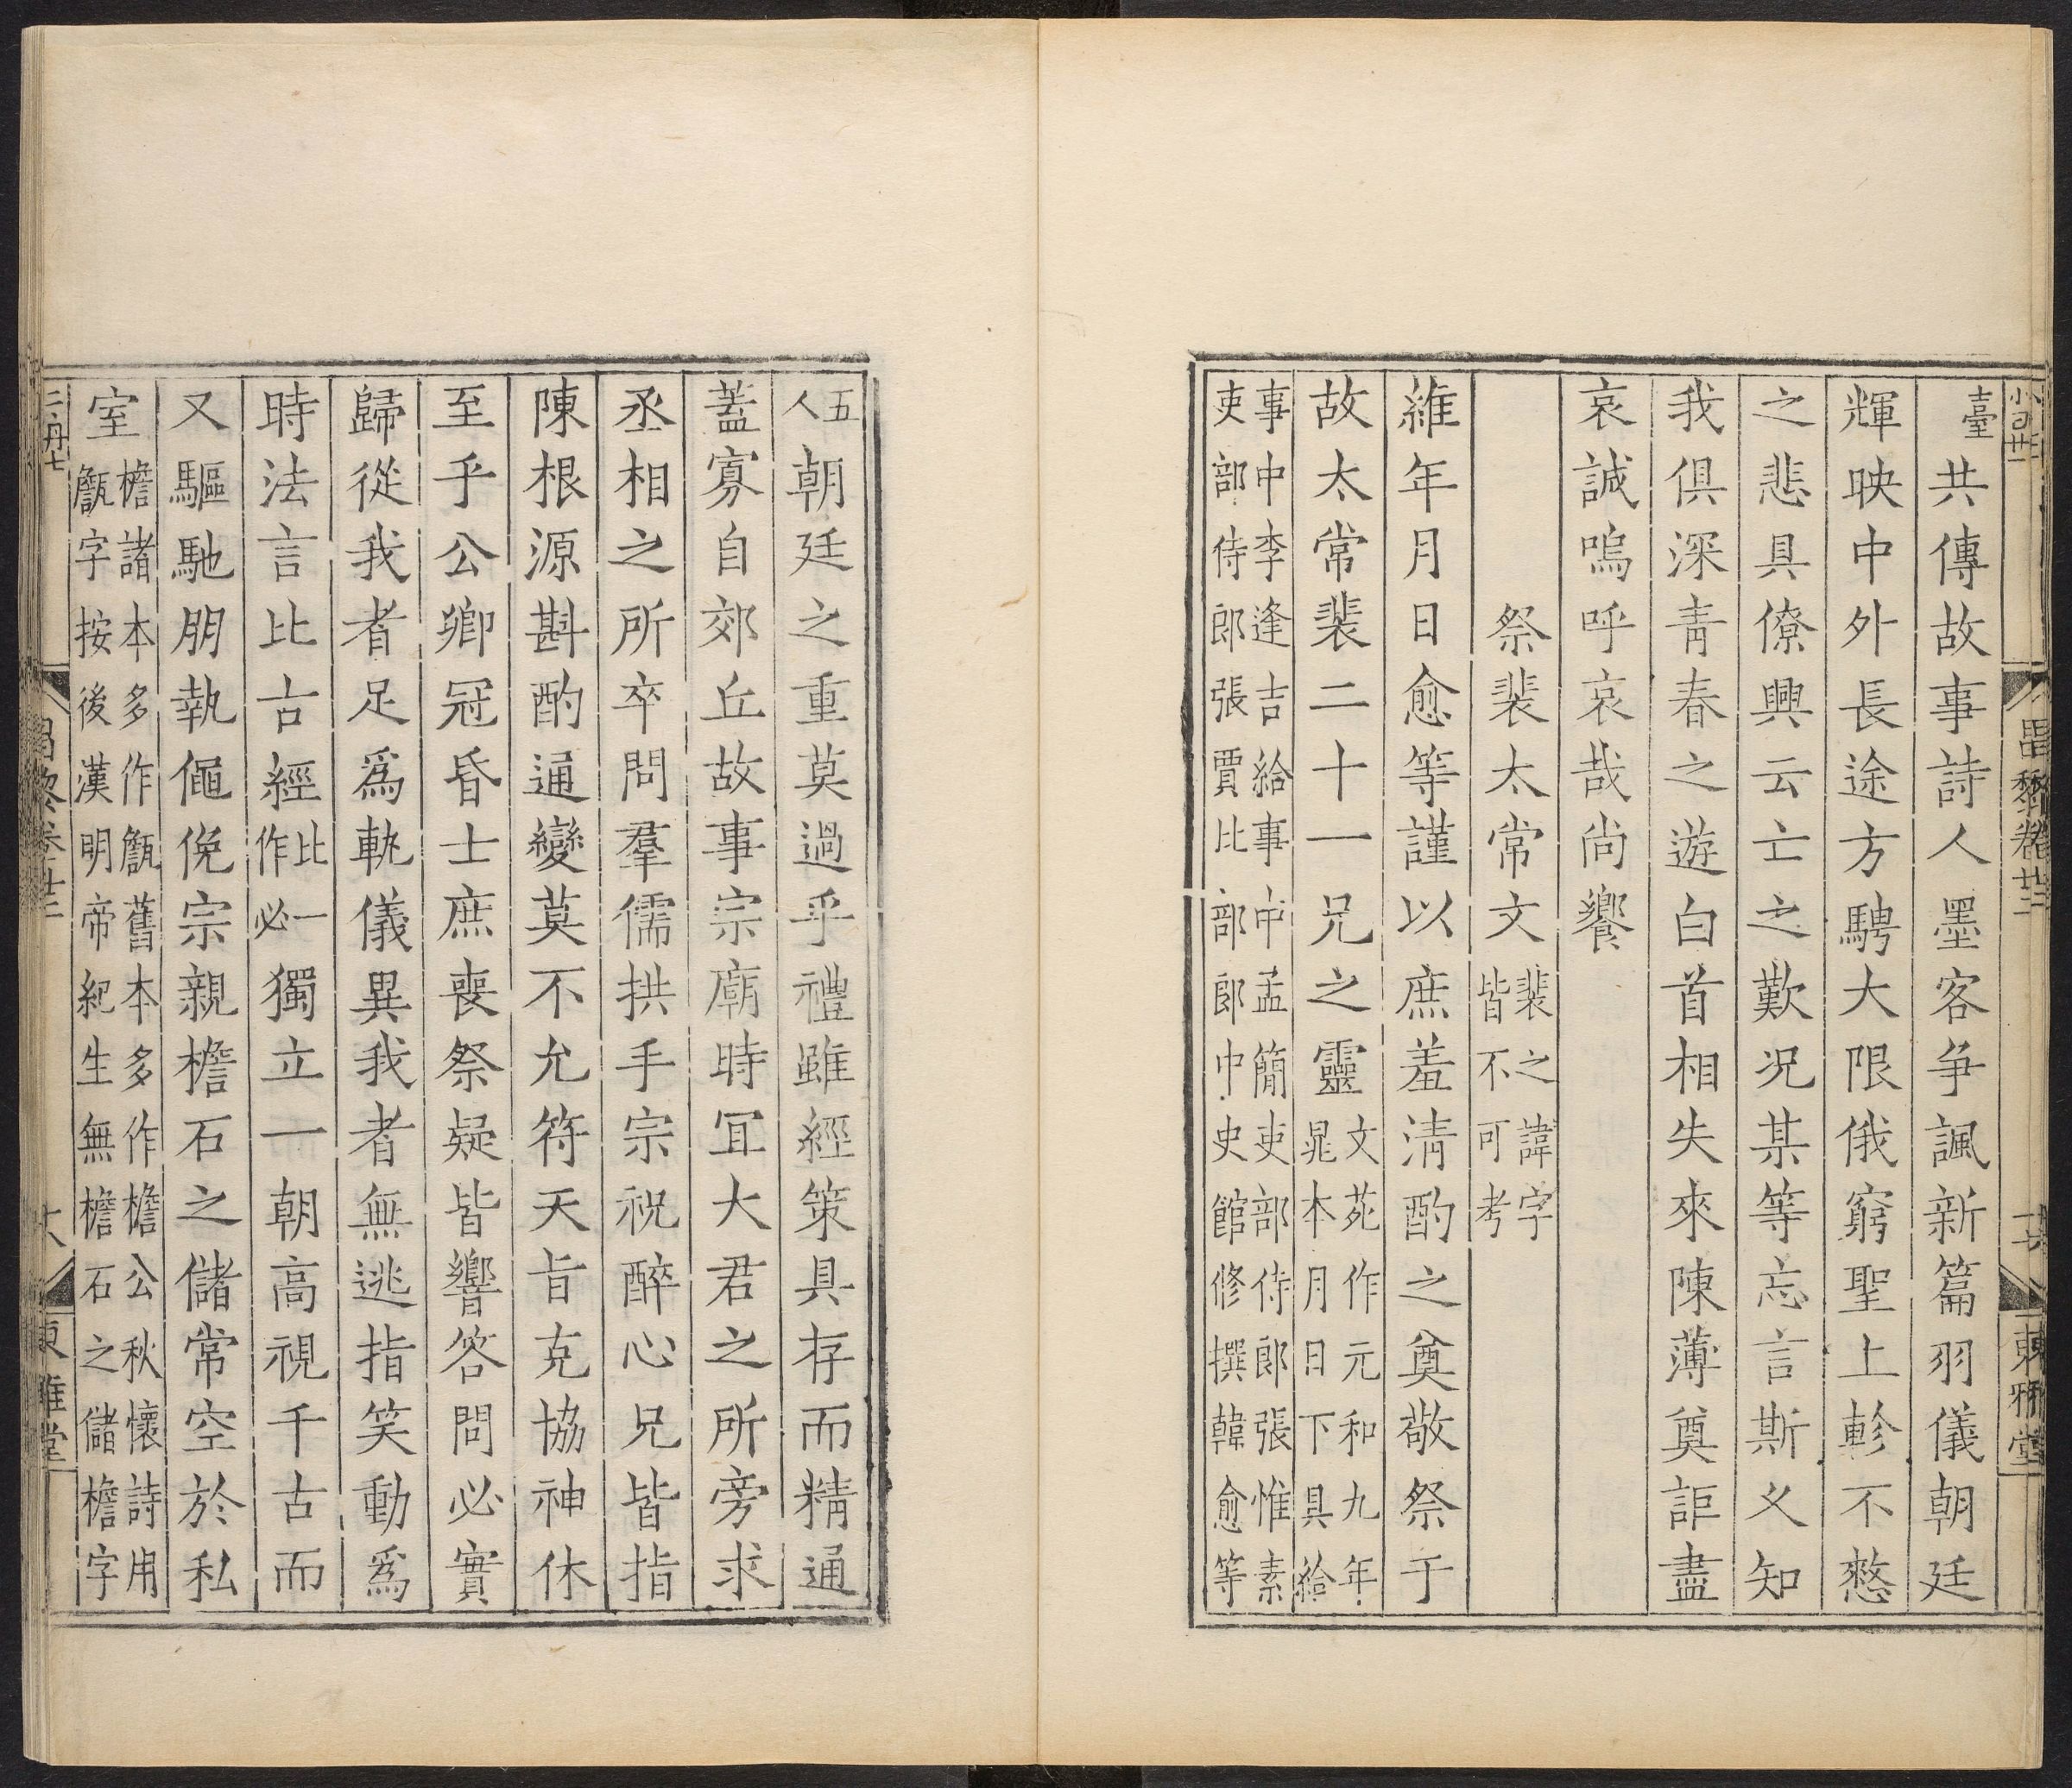 臺共傳故事詩人墨客爭諷新篇羽儀朝廷
輝映中外長途方騁大限俄窮聖上軫不憖
之悲具僚興云亡之歎況某等忘言斯义知
我俱深青春之遊白首相失來陳薄奠詎盡
哀誠嗚呼哀哉尚饗
祭裴太常文裴之諱字皆不可考
維年月日愈等謹以庶羞清酌之奠敬祭于
故太常裴二十一兄之靈文苑作元和九年晁本月日下具給
事中李逢吉給事中孟簡吏部侍郎張惟素
吏部侍郎張賈比部郎中史館修撰韓愈等
五人朝廷之重莫過乎禮雖經策具存而精通
蓋寡自郊丘故事宗廟時冝大君之所旁求
丞相之所卒問羣儒拱手宗祝醉心兄皆指
陳根源斟酌通變莫不允符天旨克協神休
至乎公卿冠昏士庶喪祭疑皆響答問必實
歸從我者足爲軌儀異我者無逃指笑動爲
時法言比古經比一作必獨立一朝高視千古而
又驅馳朋執僶俛宗親檐石之儲常空於私
室檐諸本多作甔舊本多作檐公秋懷詩用
甔字按後漢明帝紀生無檐石之儲檐字
昌黎卷廿三
東雅堂
昌黎卷廿三
東雅堂